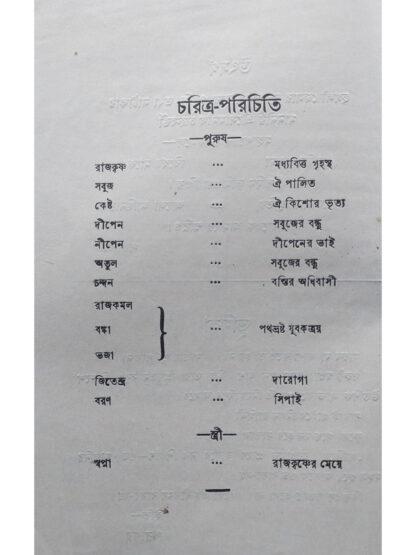 চরিত্র-পরিচিতি
—পুরুষ—
রাজকৃষ্ণ ... মধ্যবিত্ত গৃহস্থ
সবুজ ... ঐ পালিত
কেষ্ট ... ঐ কিশোর ভৃত্য
দীপেন ... সবুজের বন্ধু
নীপেন ... দীপেনের ভাই
অতুল ... সবুজের বন্ধু
চন্দন ... বস্তির অধিবাসী
রাজকমল
বঙ্কা } পথভ্রষ্ট যুবকত্রয়
ভজা
জিতেন্দ্র ... দারোগা
বরণ ... সিপাই
—স্ত্রী—
স্বপ্না ... রাজকৃষ্ণের মেয়ে